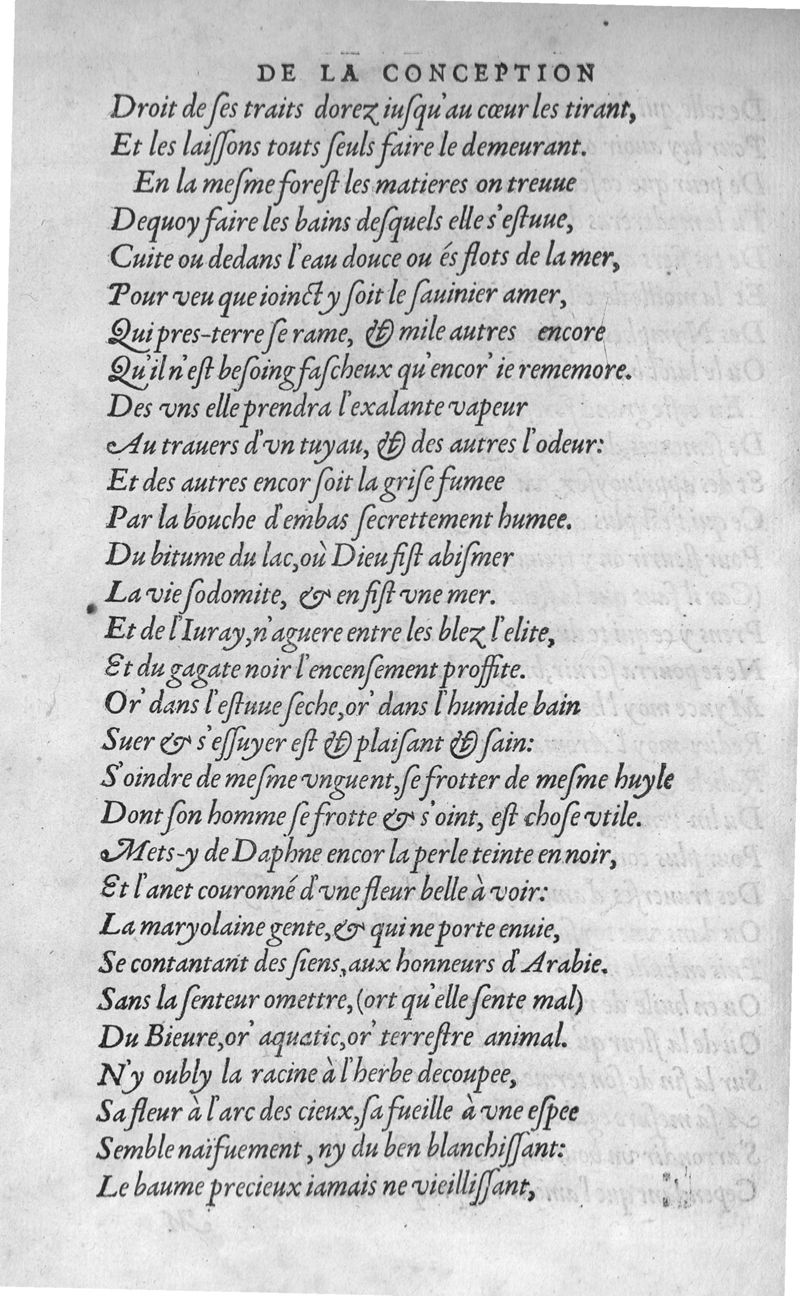 DE LA CONCEPTION
Droit de ſes traits dorez iuſqu'au cœur les tirant,
Et les laiſſons touts ſeuls faire le demeurant.
En la meſme foreſt les matieres on treuue
Dequoy faire les bains deſquels elle s'eſtuue,
Cuite ou dedans l'eau douce ou és flots de la mer,
Pour veu que ioinct y ſoit le ſauinier amer,
Qui pres-terre ſe rame, & mile autres encore
Qu'il n'eſt beſoing faſcheux qu'encor' ie rememore.
Des vns elle prendra l'exalante vapeur
Au trauers d'vn tuyau, & des autres l'odeur:
Et des autres encor ſoit la griſe fumee
Par la bouche d'embas ſecrettement humee.
Du bitume du lac, où Dieu fiſt abiſmer
La vie ſodomite, & en fiſt vne mer.
Et de l'Iuray, n'aguere entre les blez l'elite,
Et du gagate noir l'encenſement proffite.
Or' dans l'eſtuue ſeche, or' dans l'humide bain
Suer & s'eſſuyer eſt & plaiſant & ſain:
S'oindre de meſme vnguent, ſe frotter de meſme huyle
Dont ſon homme ſe frotte & s'oint, eſt choſe vtile.
Mets-y de Daphne encor la perle teinte en noir,
Et l'anet couronné d'vne fleur belle à voir:
La maryolaine gente, & qui ne porte enuie,
Se contantant des ſiens, aux honneurs d'Arabie.
Sans la ſenteur omettre, (ort qu'elle ſente mal)
Du Bieure, or' aquatic, or' terreſtre animal.
N'y oubly la racine à l'herbe decoupee,
Sa fleur à l'arc des cieux, ſa fueille à vne eſpee
Semble naïfuement, ny du ben blanchiſſant:
Le baume precieux iamais ne vieilliſſant,